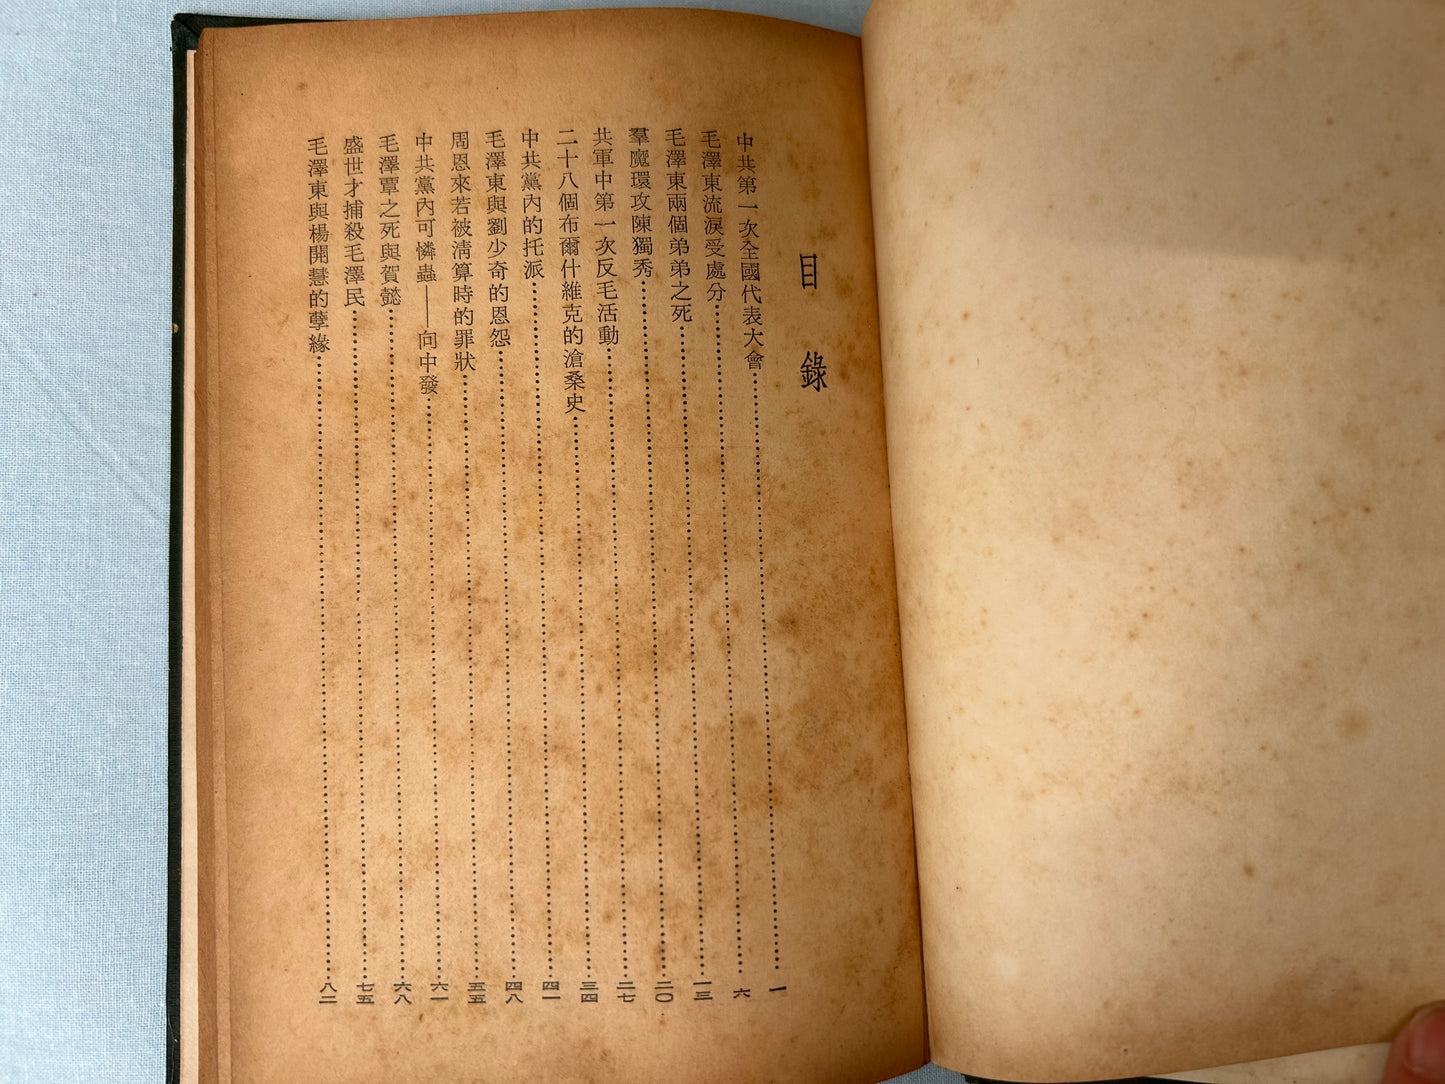 目錄
中共第一次全國代表大會……一
毛澤東流淚受處分……六
毛澤東兩個弟弟之死……一三
羣魔環攻陳獨秀……二〇
共軍中第一次反毛活動……二七
二十八個布爾什維克的滄桑史……三四
中共黨內的托派……四一
毛澤東與劉少奇的恩怨……四八
周恩來若被淸算時的罪狀……五五
中共黨內可憐蟲——向中發……六一
毛澤覃之死與賀懿……六八
盛世才捕殺毛澤民……七五
毛澤東與楊開慧的孽緣……八二